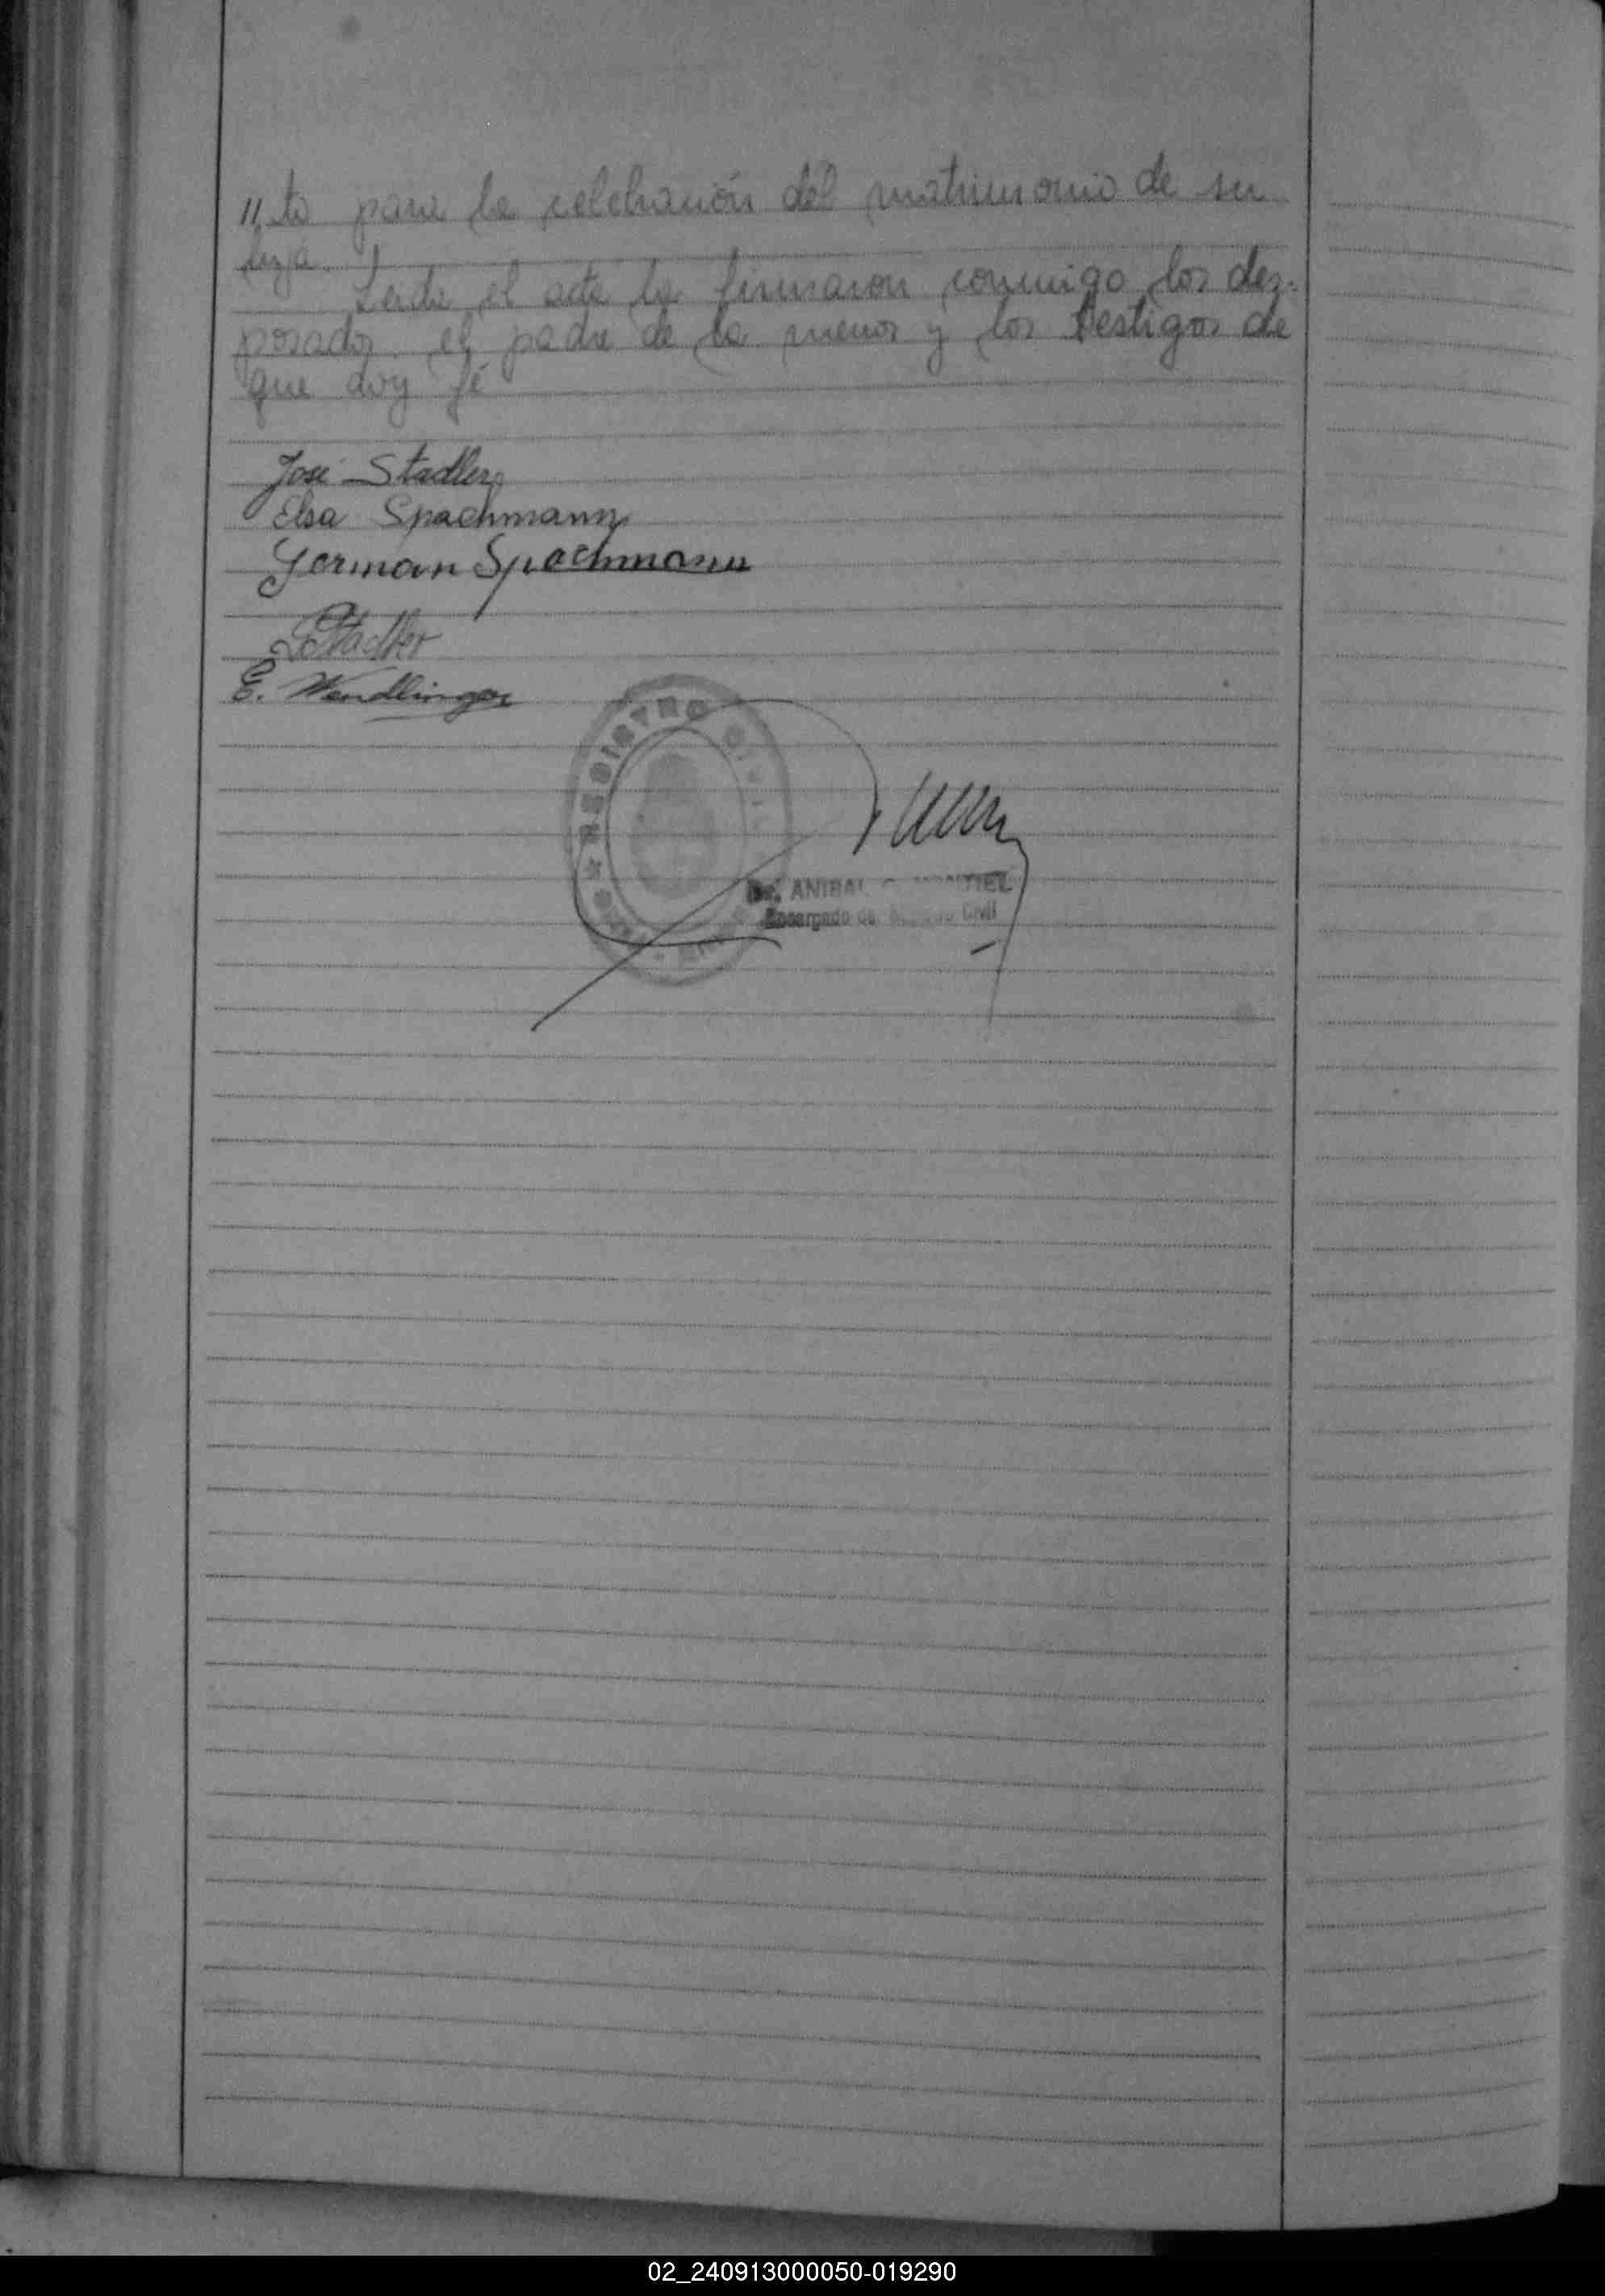 "to para la celebración del matrimonio de su
hija.
Leida el acta la firmaron conmigo los des-
posados, el padre de la menor y los testigos de
que doy fé
José Stadler
Elsa Spachmann
German Spachmann
Stadler
E. Wendlinger
REGISTRO CIVIL
Dr. ANIBAL
Encargado del Registro Civil
02_240913000050-019290